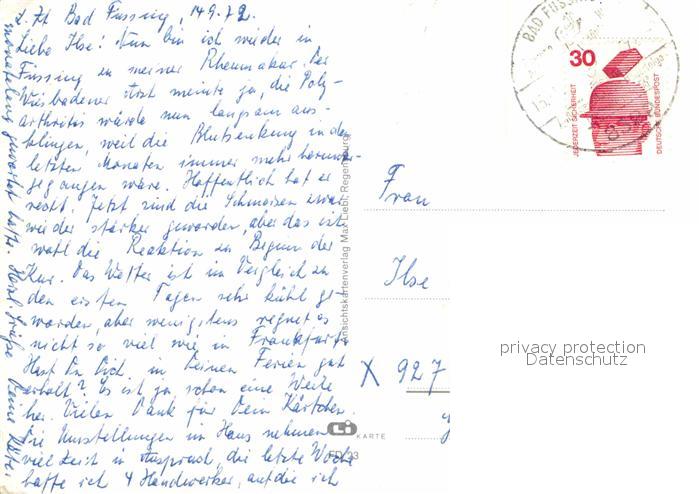 z. Zt Bad Füssing, 14.9.72.
Liebe Ilse! Nun bin ich wieder in
Füssing zu meiner Rheumakur. Der
Wiesbadener Arzt meinte ja, die Poly-
arthritis würde nun langsam aus-
klingen, weil die Blutsenkung in den
letzten Monaten immer mehr herunter-
gegangen wäre. Hoffentlich hat er
recht. Jetzt sind die Schmerzen zwar
wieder stärker geworden, aber das ist
wohl die Reaktion zu Beginn der
Kur. Das Wetter ist im Vergleich zu
den ersten Tagen sehr kühl ge-
worden, aber wenigstens regnet es
nicht so viel wie in Frankfurt.
Hast Du Dich in Deinen Ferien gut
erholt? Es ist ja schon eine Weile
her. Vielen Dank für Dein Kärtchen.
Die Umstellungen im Haus nehmen
viel Zeit in Anspruch, die letzte Woche
hatte ich 4 Handwerker, auf die ich
monatelang gewartet hatte. Herzl. Grüße Deine
Ansichtskartenverlag Max Liebl, Regensburg
KARTE
FD 23
Frau
Ilse
X 927
BAD FÜSSING
30
JEDERZEIT SICHERHEIT
DEUTSCHE BUNDESPOST
privacy protection
Datenschutz